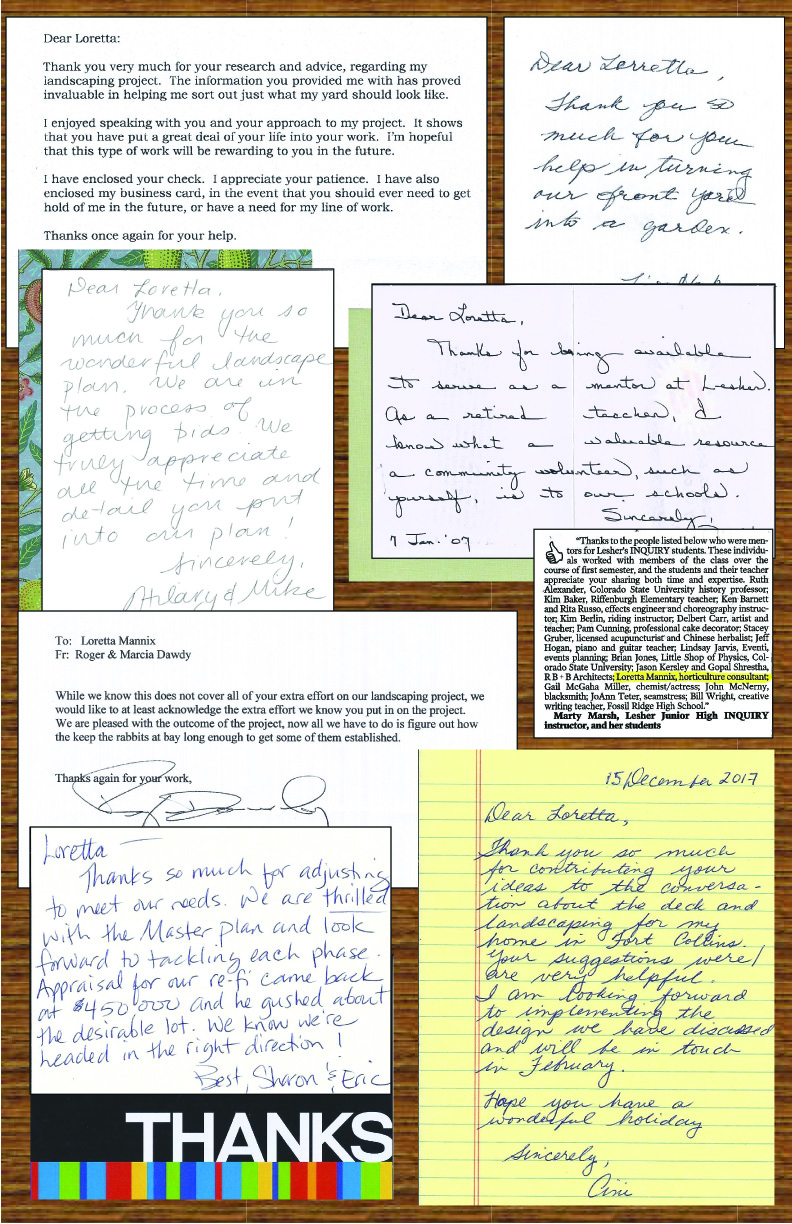 Dear Loretta:
Thank you very much for your research and advice, regarding my
landscaping project.  The information you provided me with has proved
invaluable in helping me sort out just what my yard should look like.
I enjoyed speaking with you and your approach to my project.  It shows
that you have put a great deal of your life into your work.  I'm hopeful
that this type of work will be rewarding to you in the future.
I have enclosed your check.  I appreciate your patience.  I have also
enclosed my business card, in the event that you should ever need to get
hold of me in the future, or have a need for my line of work.
Thanks once again for your help.
Dear Lorretta,
Thank you so
much for you
help in turning
our front yard
into a garden.
Dear Loretta,
Thank you so
much for the
wonderful landscape
plan. We are in
the process of
getting bids. We
truly appreciate
all the time and
detail you put
into our plan!
Sincerely,
Hilary & Mike
Dear Loretta,
Thanks for being available
to serve as a mentor at Lesher.
As a retired teacher, I
know what a valuable resource
a community volunteer, such as
yourself, is to our schools.
Sincerely,
7 Jan. '07
"Thanks to the people listed below who were men-
tors for Lesher's INQUIRY students. These individu-
als worked with members of the class over the
course of first semester, and the students and their teacher
appreciate your sharing both time and expertise. Ruth
Alexander, Colorado State University history professor;
Kim Baker, Riffenburgh Elementary teacher; Ken Barnett
and Rita Russo, effects engineer and choreography instruc-
tor; Kim Berlin, riding instructor; Delbert Carr, artist and
teacher; Pam Cunning, professional cake decorator; Stacey
Gruber, licensed acupuncturist and Chinese herbalist; Jeff
Hogan, piano and guitar teacher; Lindsay Jarvis, Eventi,
events planning; Brian Jones, Little Shop of Physics, Col-
orado State University; Jason Kersley and Gopal Shrestha,
R B + B Architects; Loretta Mannix, horticulture consultant;
Gail McGaha Miller, chemist/actress; John McNerny,
blacksmith; JoAnn Teter, seamstress; Bill Wright, creative
writing teacher, Fossil Ridge High School."
Marty Marsh, Lesher Junior High INQUIRY
instructor, and her students
To:   Loretta Mannix
Fr:   Roger & Marcia Dawdy
While we know this does not cover all of your extra effort on our landscaping project, we
would like to at least acknowledge the extra effort we know you put in on the project.
We are pleased with the outcome of the project, now all we have to do is figure out how
the keep the rabbits at bay long enough to get some of them established.
Thanks again for your work,
Loretta —
Thanks so much for adjusting
to meet our needs. We are thrilled
with the Master plan and look
forward to tackling each phase.
Appraisal for our re-fi came back
at $450,000 and he gushed about
the desirable lot. We know we're
headed in the right direction!
Best, Sharon & Eric
THANKS
15 December 2017
Dear Loretta,
Thank you so much
for contributing your
ideas to the conversa-
tion about the deck and
landscaping for my
home in Fort Collins.
Your suggestions were/
are very helpful.
I am looking forward
to implementing the
design we have discussed
and will be in touch
in February.
Hope you have a
wonderful holiday
Sincerely,
Cini